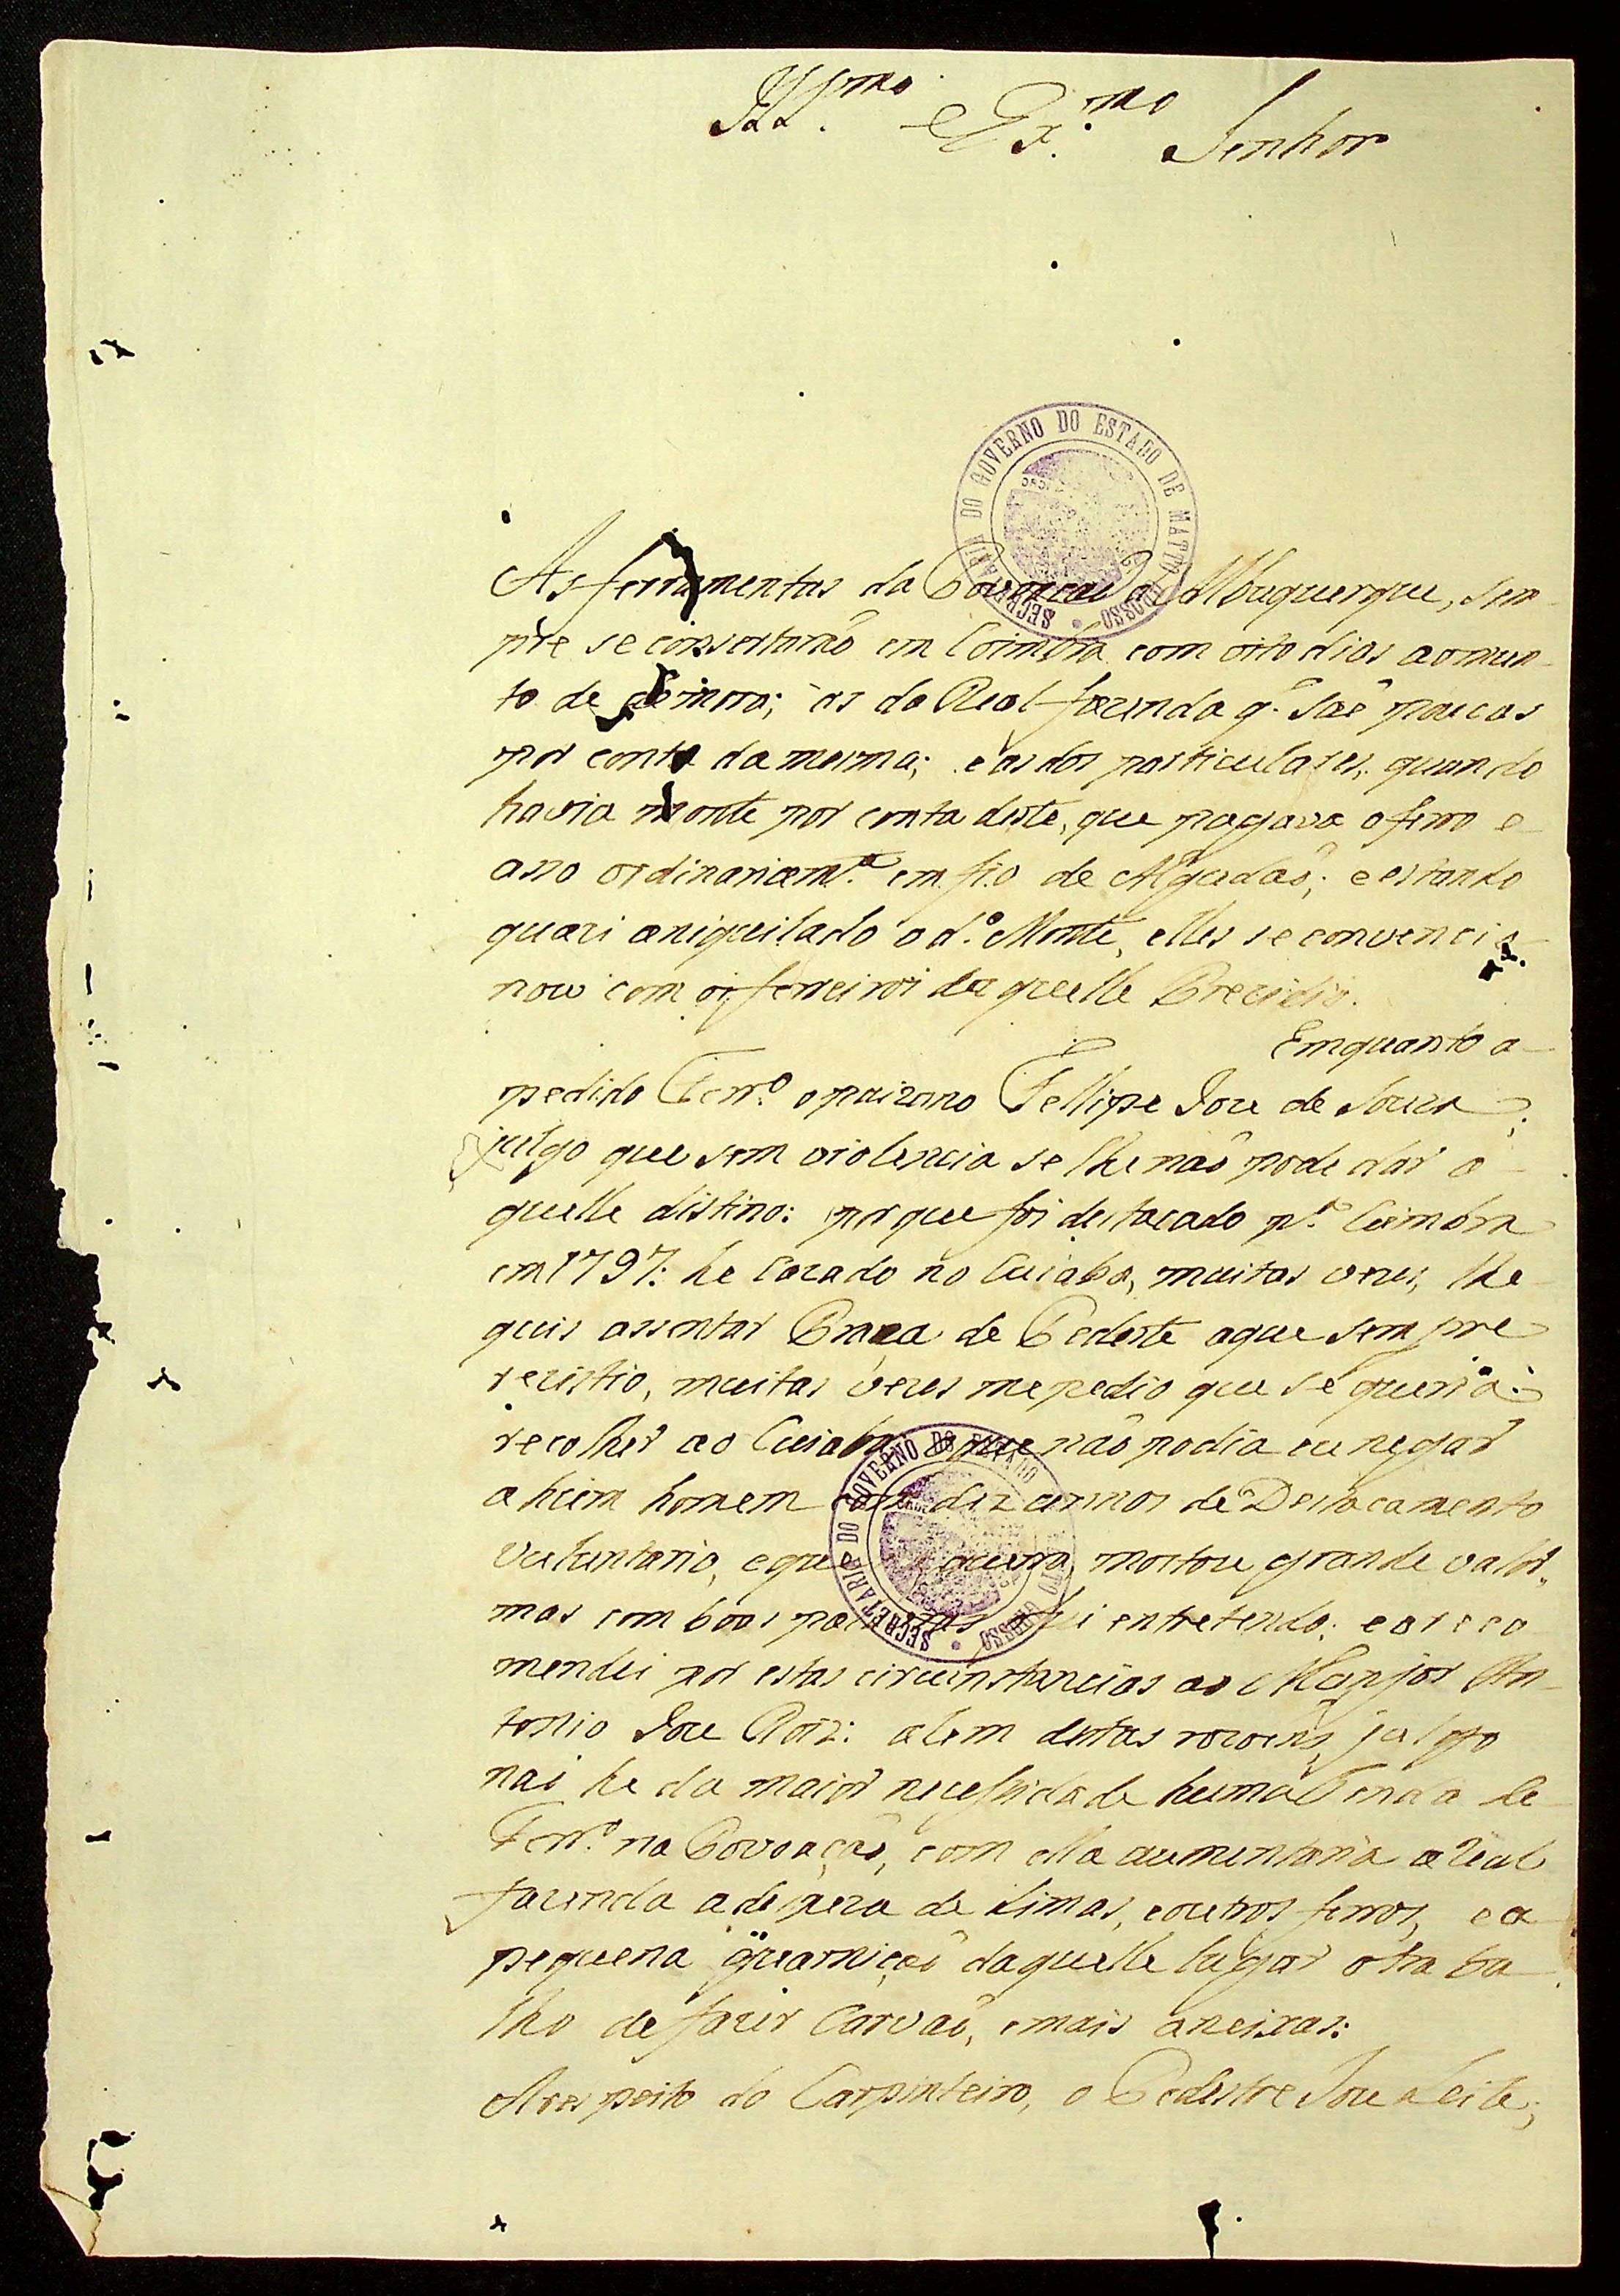 Ill.mo e Ex.mo Senhor
SECRETARIA DO GOVERNO DO ESTADO DE MATTO GROSSO
As ferramentas da Povoaçaõ de Albuquerque, sem-
pre se consertaraõ em Coimbra com oito dias ao mun-
to de demora; as da Real fazenda q. saõ poucas
por conta da mesma; e as dos particulares, quando
havia monte por conta deste, que pagava o ferro e
asso ordinariam.te em fio de Algudaõ; e estando
quazi aniquilado o d.o Monte, elles se convencio-
naõ com os ferreiros daquelle Prezidio.
Emquanto a-
pedido Ferr.o o paizano Fellipe Joze de Souza;
julgo que sem violencia se lhe naõ pode dar a-
quelle distino: por que foi destacado p.a Coimbra
em 1797: he Cazado no Cuiaba, muitas vezes, lhe
quis assentar Praça de Pedeste aque sempre
rezistio, muitas vezes me pedio que se queria
recolher ao Cuiaba, o que naõ podia eu negar
a hum homem com diz annos de Destacamento
Vuluntario, e que guerra, mostou grande valor,
mas com boas palavras o fui entretendo; e o reco
mendei por estas circunstancias ao Major An-
tonio Joze Roiz: alem destas rozoens, julgo
naõ he da maior necessidade huma Tenda de
Ferr.o na Povoaçaõ, com ella aumentaria a Real
fazenda a despeza de Limas, e outros ferros, e a
pequena guarniçaõ daquelle lugar o traba-
lho de fazer Carvaõ, e mais aneixas:
A respeito do Carpinteiro, o Pedestre Joze Leite;
SECRETARIA DO GOVERNO DO ESTADO DE MATTO GROSSO